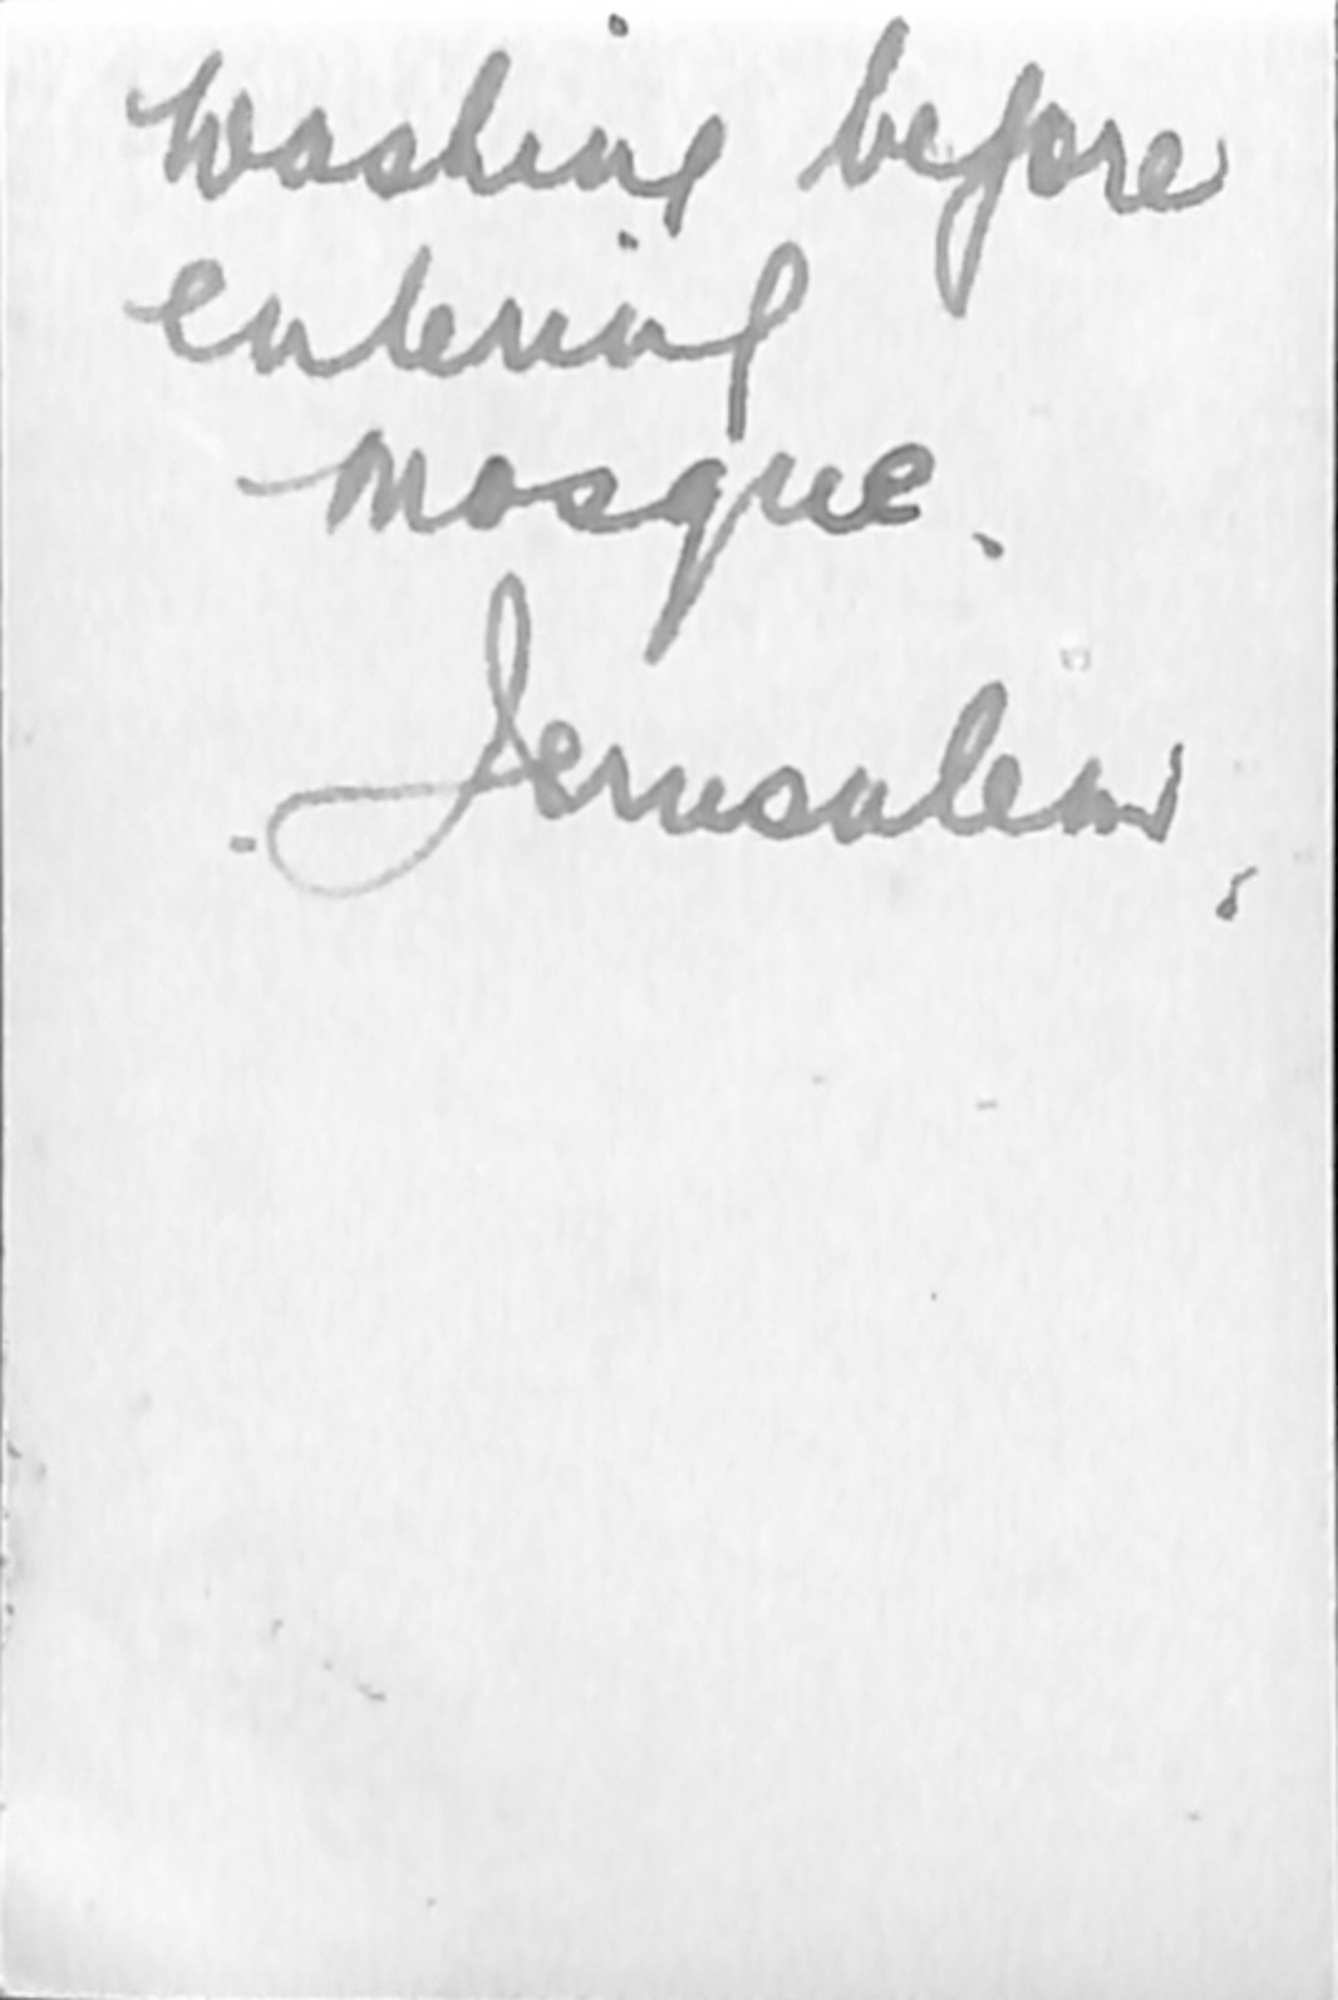 Washing before
entering
mosque.
Jerusalem,